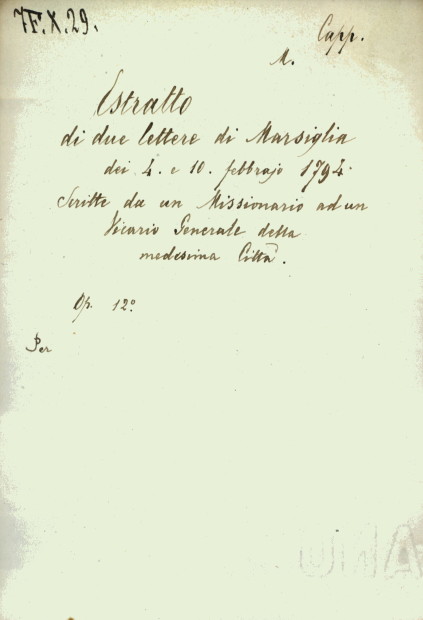 7F.X.29.
Capp.
M.
Estratto
di due lettere di Marsiglia
dei 4. e 10. febbrajo 1794.
Scritte da un Missionario ad un
Vicario Generale della
medesima Città.
Op. 12º
Per